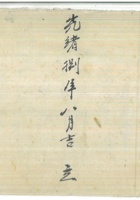 光緒捌年八月吉 立